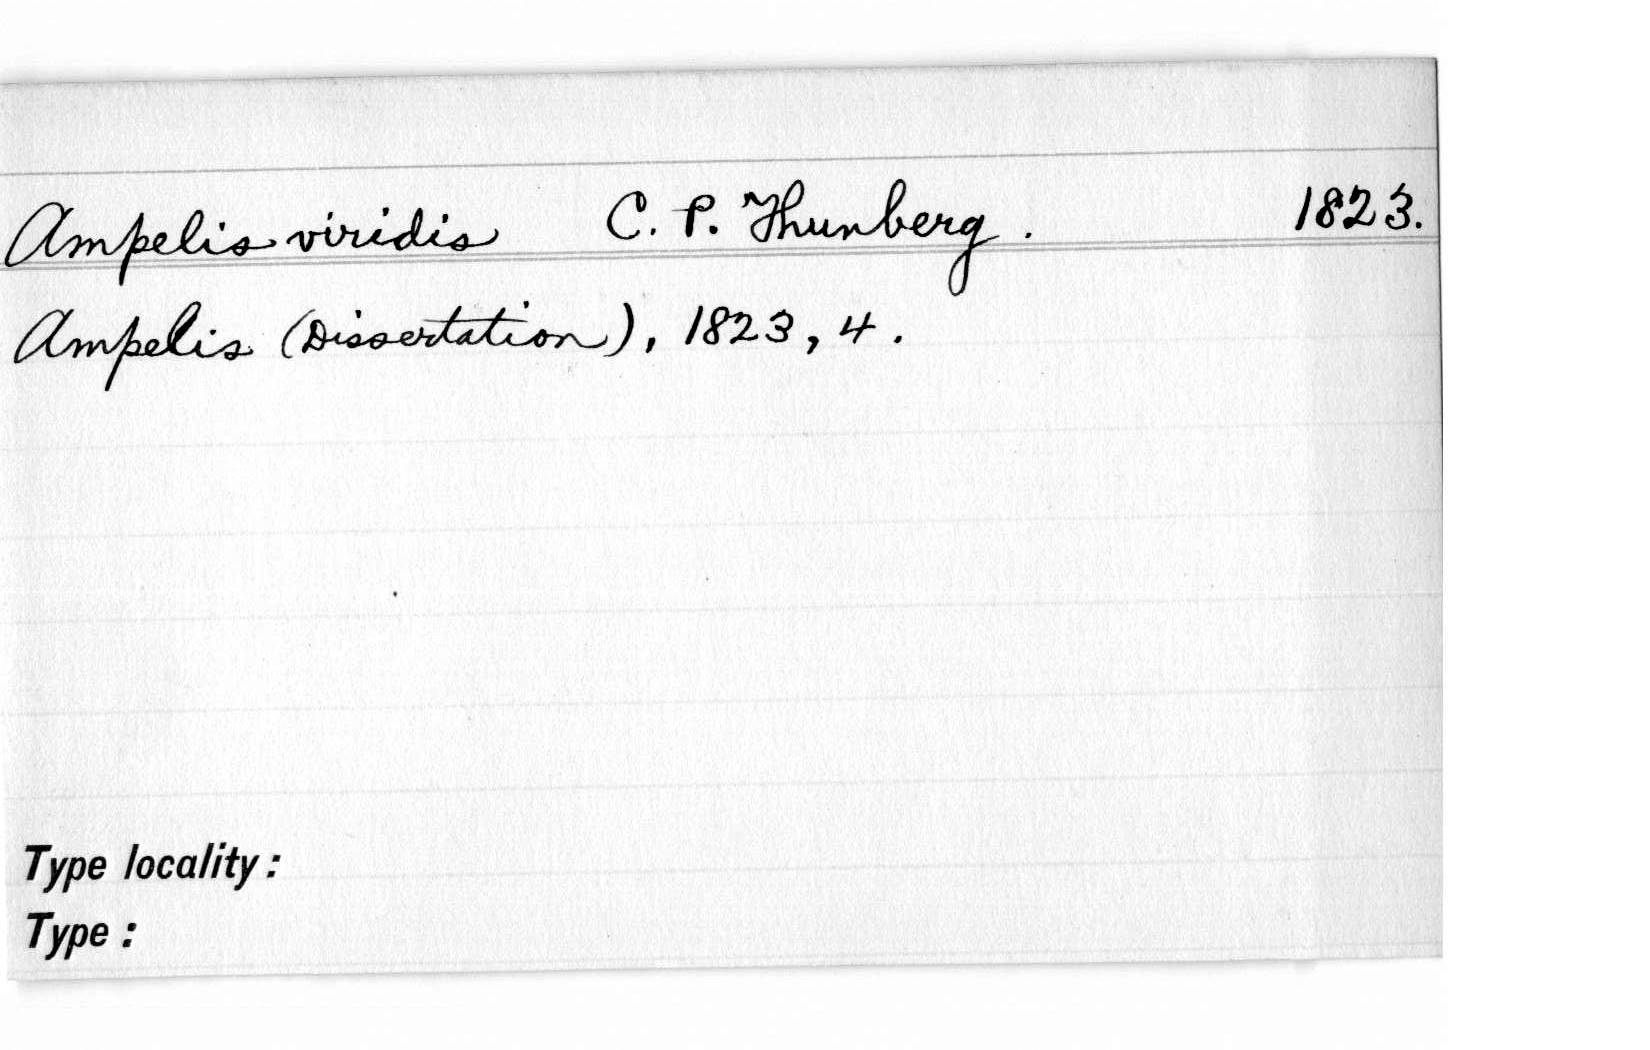 Ampelis viridis C. P. Thunberg. 1823.
Ampelis (Dissertation), 1823, 4.
Type locality:
Type: